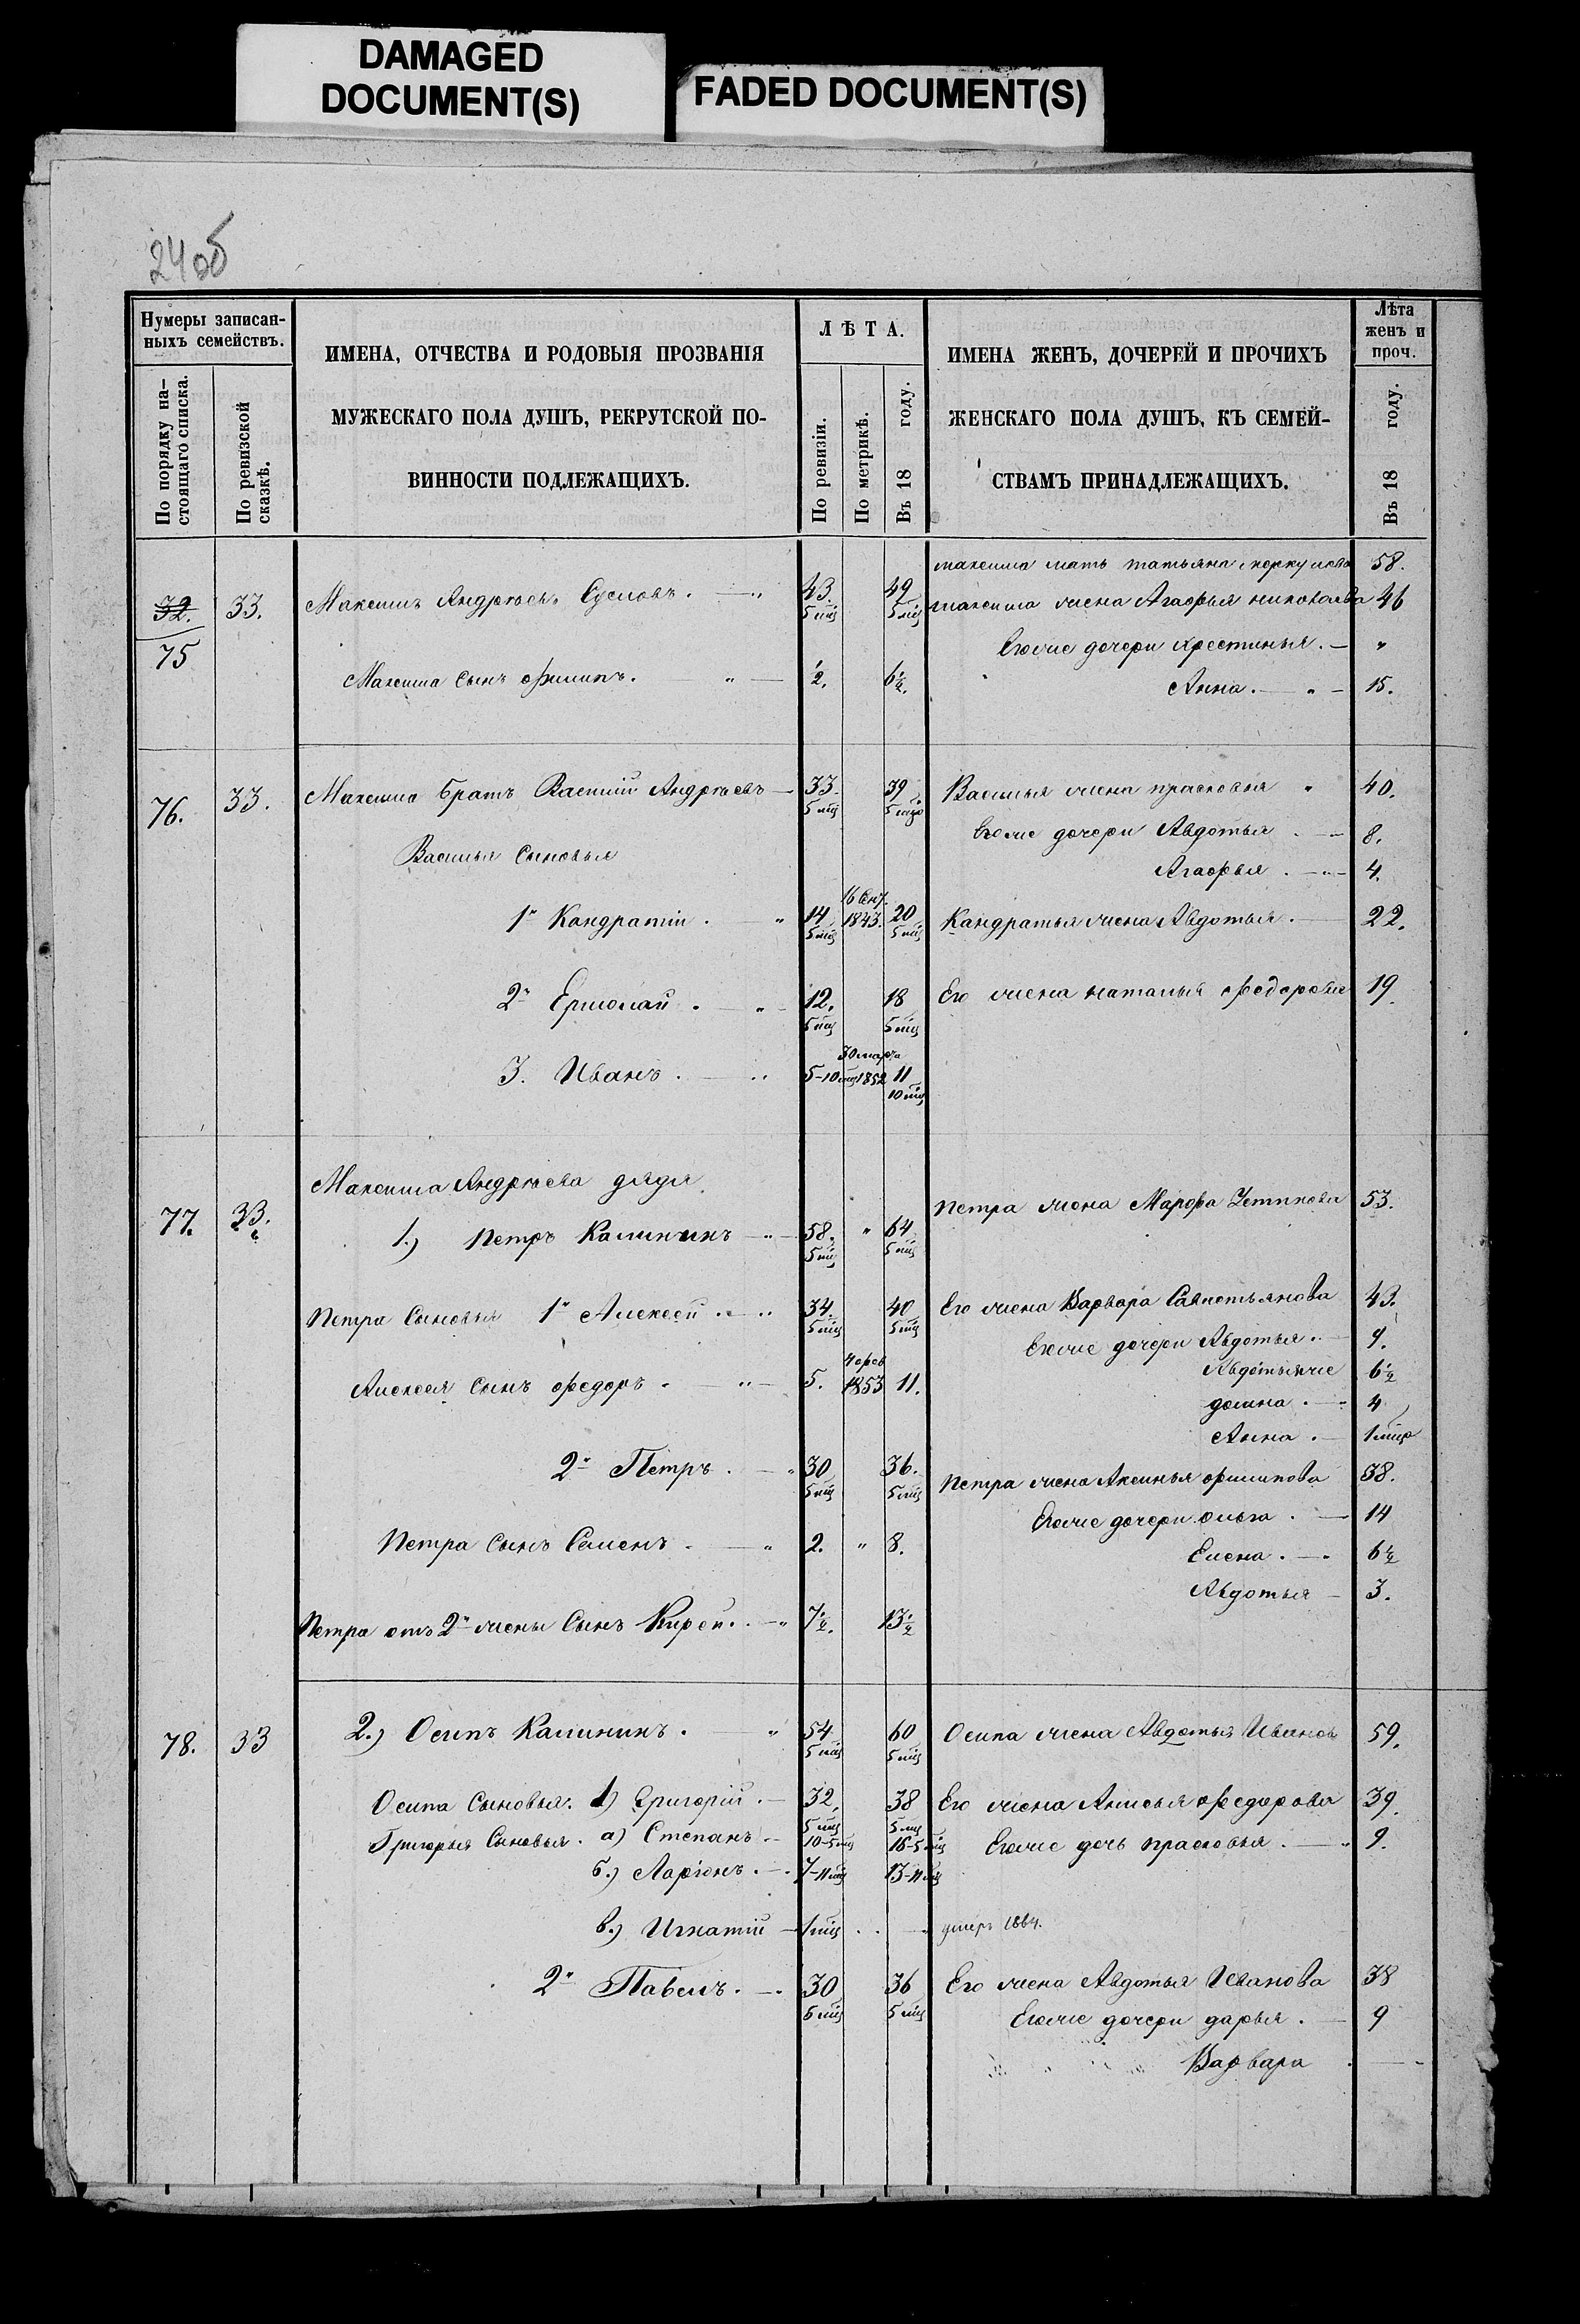 DAMAGED
DOCUMENT(S)
FADED DOCUMENT(S)
24об
Нумеры записан-
ныхъ семействъ.
По порядку на-
стоящаго списка.
По ревизской
сказкѣ.
ИМЕНА, ОТЧЕСТВА И РОДОВЫЯ ПРОЗВАНІЯ
МУЖЕСКАГО ПОЛА ДУШЪ, РЕКРУТСКОЙ ПО-
ВИННОСТИ ПОДЛЕЖАЩИХЪ.
ЛѢТА.
По ревизіи.
По метрикѣ.
Въ 18 году.
ИМЕНА ЖЕНЪ, ДОЧЕРЕЙ И ПРОЧИХЪ
ЖЕНСКАГО ПОЛА ДУШЪ, КЪ СЕМЕЙ-
СТВАМЪ ПРИНАДЛЕЖАЩИХЪ.
Лѣта
женъ и
проч.
Въ 18 году.
максима мать татьяна меркулова 58.
32. 33. Максимъ Андрѣевъ Сусловъ. 43. 5 мц 49 5 мц максима жена Агафья николаева 46
75
Егоже дочери христинья. — "
Максима сынъ филипъ. " ½. 6½. Анна. " 15.
76. 33. Максима братъ Василій Андрѣевъ 33. 5 мц 39 5 мцъ Василья жена прасковья " 40.
Егоже дочери Авдотья . — 8.
Василья сыновья
Агафья . — 4.
1й Кондратій . " 14 5 мц 16 Сен. 1843. 20 5 мц Кандратья жена Авдотья. 22.
2й Ермолай . " 12. 5 мц 18 5 мц Его жена наталья федорова 19
3. Иванъ . " 5-10 мц 30 марта 1852 11 10 мц
Максима Андрѣева дядя
77. 33. 1.) Петръ Калининъ " 58. 5 мц " 64 5 мц петра жена Марфа 53.
Петра сыновья 1й Алексей " 34. 5 мц 40 5 мц Его жена Варвара 43.
Егоже дочери Авдотья. 9.
Алексея сынъ федоръ . " 5. 4 фев 1853 11. Авдотьяже 6½
домна . — 4
Анна . — 1 мцъ
2й Петръ . " 30 5 мц 36. 5 мц Петра жена Аксинья филипова 38.
Егоже дочери ольга . — 14
Петра сынъ Семенъ . " 2. " 8. Елена . — . 6½
Авдотья — 3.
Петра отъ 2й жены сынъ Кирей. " 7½. 13½
78. 33 2.) Осипъ Калининъ . " 54 5 мц 60 5 мц Осипа жена Авдотья Иванов 59.
Осипа сыновья. 1) Григорій. — 32, 5 мц 38 5 мц Его жена Анисья федорова 39.
Григорья сыновья. а) Степанъ 10-5 мц 16-5 мц Егоже дочь прасковья . " 9.
б.) Ларіонъ . 7-11 мц 13-11 мц
в.) Игнатій 1 мц умеръ 1864.
2й Павелъ. 30 6 мц 36 5 мц Его жена Авдотья Иванова 38
Егоже дочери дарья . — 9
Варвара